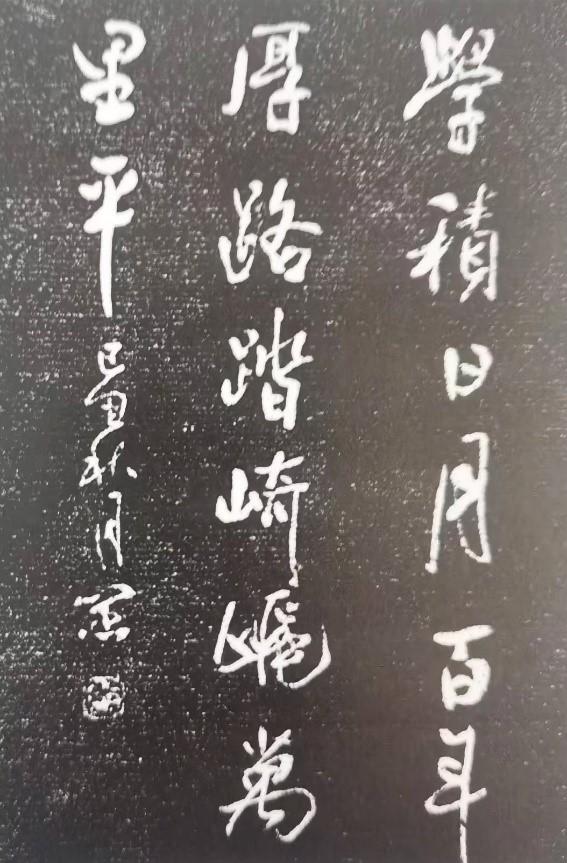 學積日月百年
厚路踏崎嶇萬
里平己丑秋月